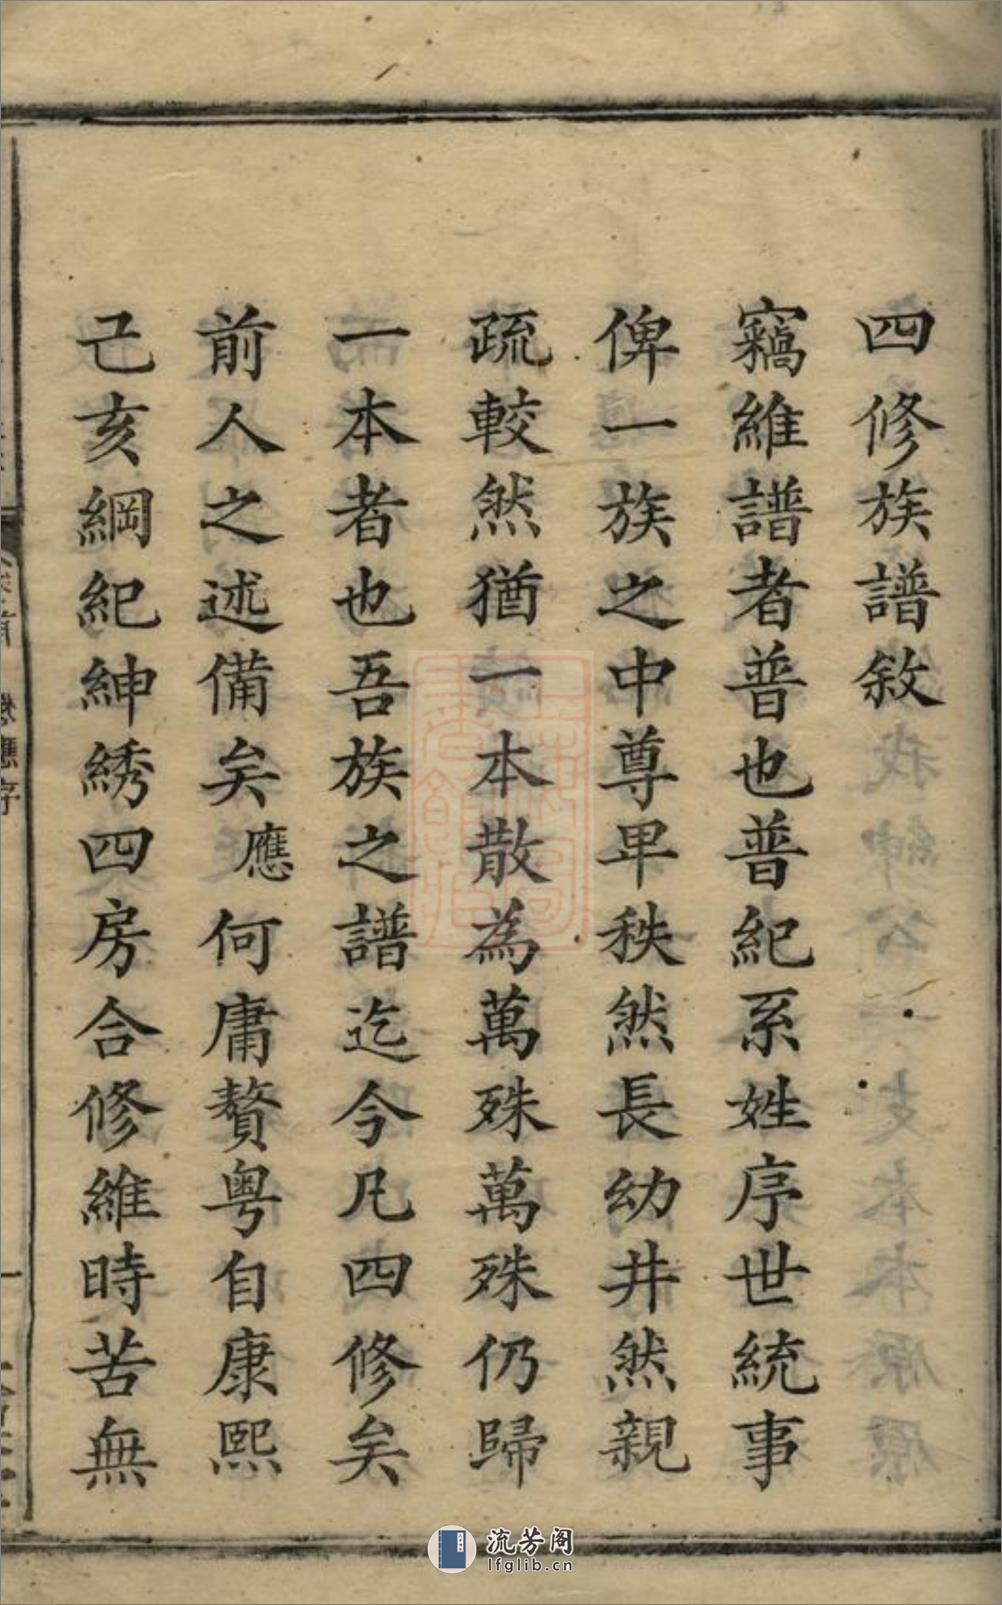 四修族譜敘
竊維譜者普也普紀系姓序世統事
俾一族之中尊卑秩然長幼井然親
疏較然猶一本散為萬殊萬殊仍歸
一本者也吾族之譜迄今凡四修矣
前人之述備矣應何庸贅粵自康熙
己亥綱紀紳綉四房合修維時苦無
流芳阁
lfglib.cn